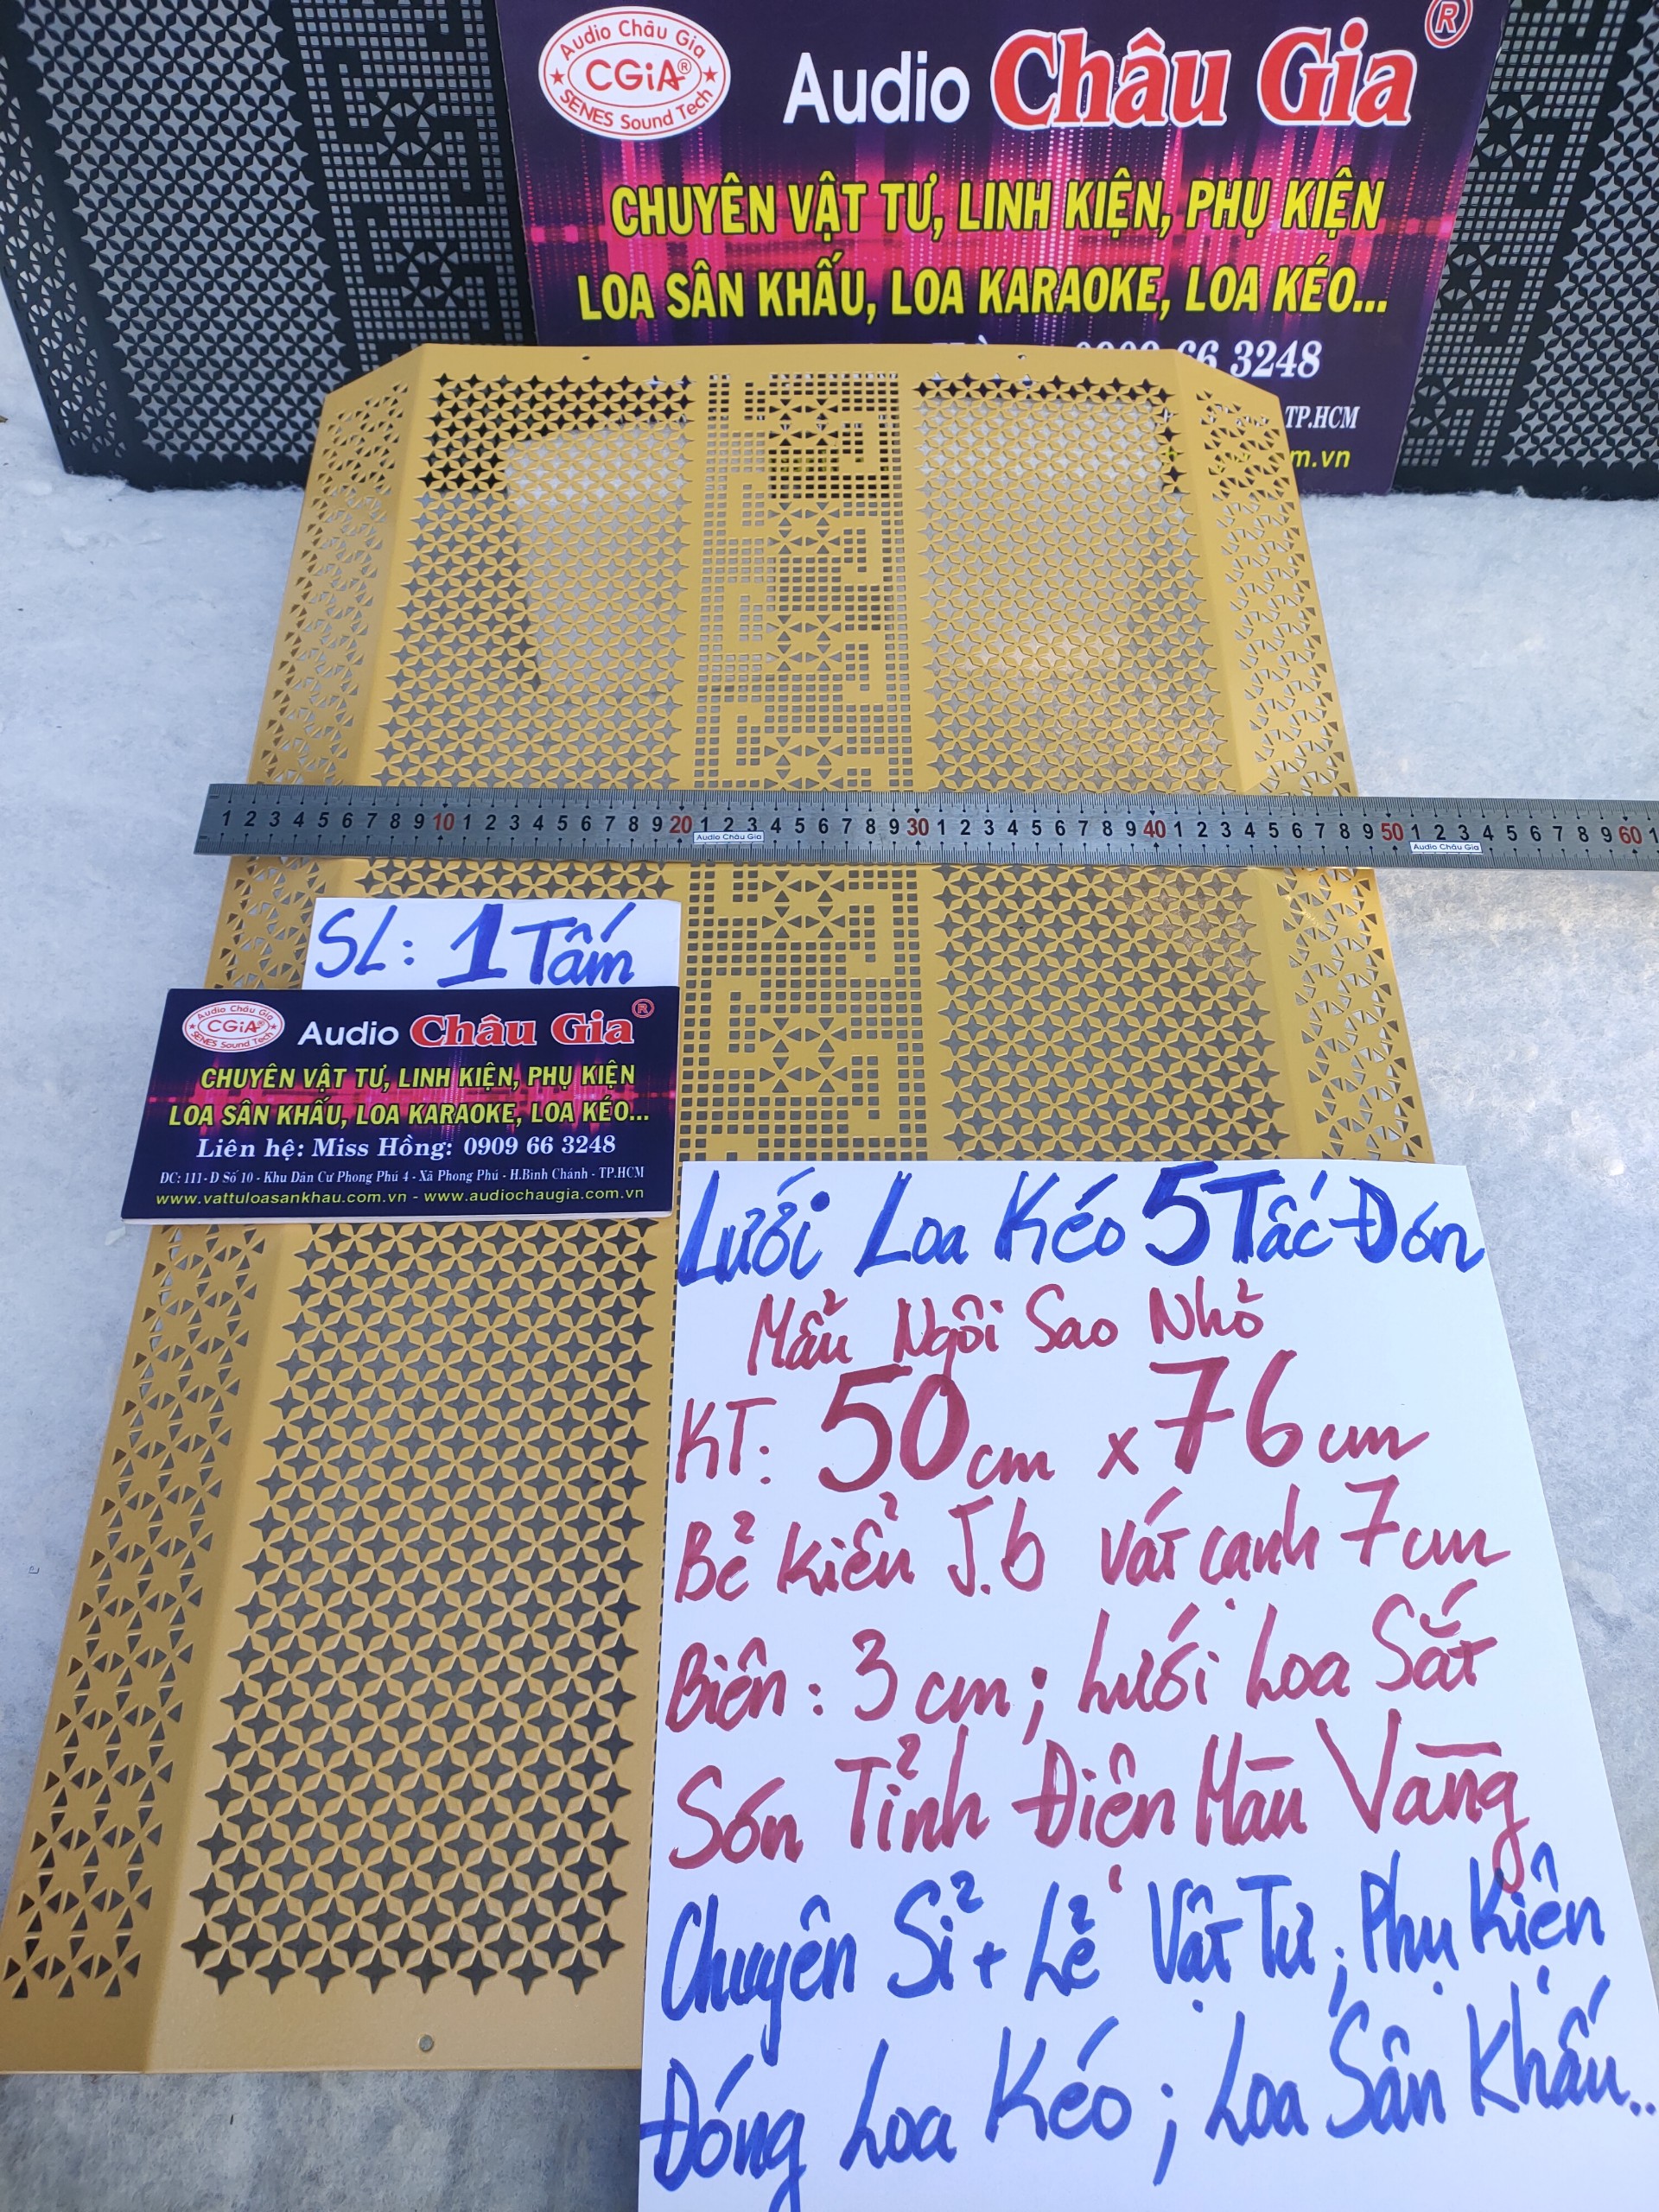 Audio Châu Gia
CGiA®
SENES Sound Tech
Audio Châu Gia ®
CHUYÊN VẬT TƯ, LINH KIỆN, PHỤ KIỆN
LOA SÂN KHẤU, LOA KARAOKE, LOA KÉO...
66 3248
TP.HCM
m.vn
1 2 3 4 5 6 7 8 9 10 1 2 3 4 5 6 7 8 9 20 1 2 3 4 5 6 7 8 9 30 1 2 3 4 5 6 7 8 9 40 1 2 3 4 5 6 7 8 9 50 1 2 3 4 5 6 7 8 9 60 1
Audio Châu Gia
Audio Châu Gia
SL: 1 Tấm
Audio Châu Gia
CGiA®
SENES Sound Tech
Audio Châu Gia ®
CHUYÊN VẬT TƯ, LINH KIỆN, PHỤ KIỆN
LOA SÂN KHẤU, LOA KARAOKE, LOA KÉO...
Liên hệ: Miss Hồng: 0909 66 3248
ĐC: 111-D Số 10 - Khu Dân Cư Phong Phú 4 - Xã Phong Phú - H.Bình Chánh - TP.HCM
www.vattuloasankhau.com.vn - www.audiochaugia.com.vn
Lưới Loa Kéo 5 Tấc Đơn
Mẫu Ngôi Sao Nhỏ
KT: 50cm x 76cm
Bẻ Kiểu J.b Vát cạnh 7cm
Biên: 3cm; Lưới Loa Sắt
Sơn Tỉnh Điện Màu Vàng
Chuyên Sỉ + Lẻ Vật Tư; Phụ Kiện
Đóng Loa Kéo; Loa Sân Khấu..